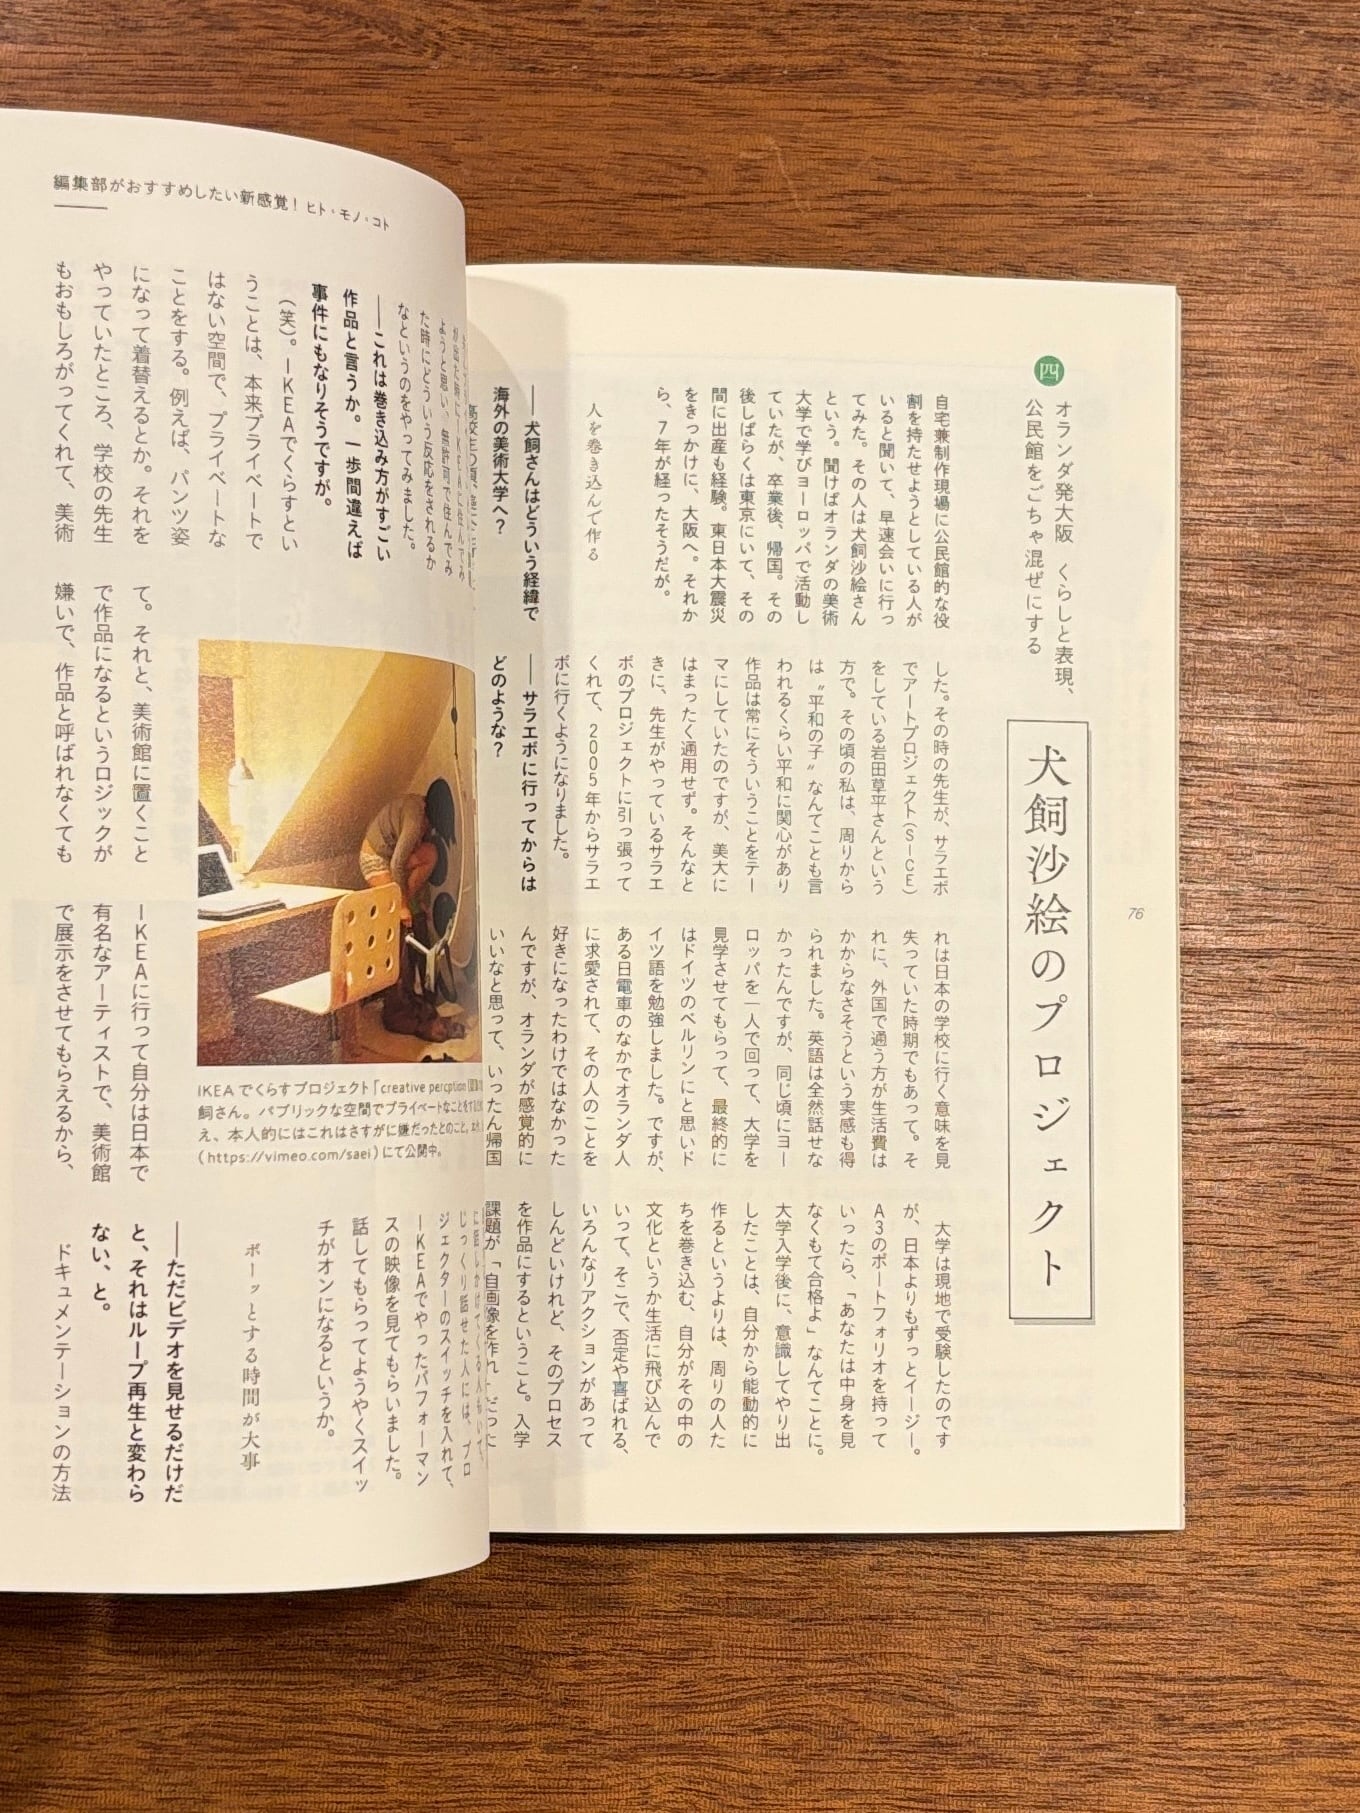 四
オランダ発大阪　くらしと表現、
公民館をごちゃ混ぜにする
犬飼沙絵のプロジェクト
76
自宅兼制作現場に公民館的な役
割を持たせようとしている人が
いると聞いて、早速会いに行っ
てみた。その人は犬飼沙絵さん
という。聞けばオランダの美術
大学で学びヨーロッパで活動し
ていたが、卒業後、帰国。その
後しばらくは東京にいて、その
間に出産も経験。東日本大震災
をきっかけに、大阪へ。それか
ら、7年が経ったそうだが。
人を巻き込んで作る
── 犬飼さんはどういう経緯で
海外の美術大学へ？
した。その時の先生が、サラエボ
でアートプロジェクト（SICE）
をしている岩田草平さんという
方で。その頃の私は、周りから
は〝平和の子〟なんてことも言
われるくらい平和に関心があり
作品は常にそういうことをテー
マにしていたのですが、美大に
はまったく通用せず。そんなと
きに、先生がやっているサラエ
ボのプロジェクトに引っ張って
くれて、2005年からサラエ
ボに行くようになりました。
── サラエボに行ってからは
どのような？
れは日本の学校に行く意味を見
失っていた時期でもあって。そ
れに、外国で通う方が生活費は
かからなさそうという実感も得
られました。英語は全然話せな
かったんですが、同じ頃にヨー
ロッパを一人で回って、大学を
見学させてもらって、最終的に
はドイツのベルリンにと思いド
イツ語を勉強しました。ですが、
ある日電車のなかでオランダ人
に求愛されて、その人のことを
好きになったわけではなかった
んですが、オランダが感覚的に
いいなと思って、いったん帰国
大学は現地で受験したのです
が、日本よりもずっとイージー。
A3のポートフォリオを持って
いったら、「あなたは中身を見
なくもて合格よ」なんてことに。
大学入学後に、意識してやり出
したことは、自分から能動的に
作るというよりは、周りの人た
ちを巻き込む、自分がその中の
文化というか生活に飛び込んで
いって、そこで、否定や喜ばれる、
いろんなリアクションがあって
しんどいけれど、そのプロセス
を作品にするということ。入学
課題が「自画像を作れ」だった
編集部がおすすめしたい新感覚！ ヒト・モノ・コト
ようと思い、無許可で住んでみ
た時にどういう反応をされるか
なというのをやってみました。
──これは巻き込み方がすごい
作品と言うか。一歩間違えば
事件にもなりそうですが。
（笑）。IKEAでくらすとい
うことは、本来プライベートで
はない空間で、プライベートな
ことをする。例えば、パンツ姿
になって着替えるとか。それを
やっていたところ、学校の先生
もおもしろがってくれて、美術
て。それと、美術館に置くこと
で作品になるというロジックが
嫌いで、作品と呼ばれなくても
IKEAでくらすプロジェクト「creative percption
飼さん。パブリックな空間でプライベートなことをする
え、本人的にはこれはさすがに嫌だったとのこと。
（https://vimeo.com/saei）にて公開中。
IKEAに行って自分は日本で
有名なアーティストで、美術館
で展示をさせてもらえるから、
じっくり話せた人には、プロ
ジェクターのスイッチを入れて、
IKEAでやったパフォーマン
スの映像を見てもらいました。
話してもらってようやくスイッ
チがオンになるというか。
ボーッとする時間が大事
──ただビデオを見せるだけだ
と、それはループ再生と変わら
ない、と。
ドキュメンテーションの方法